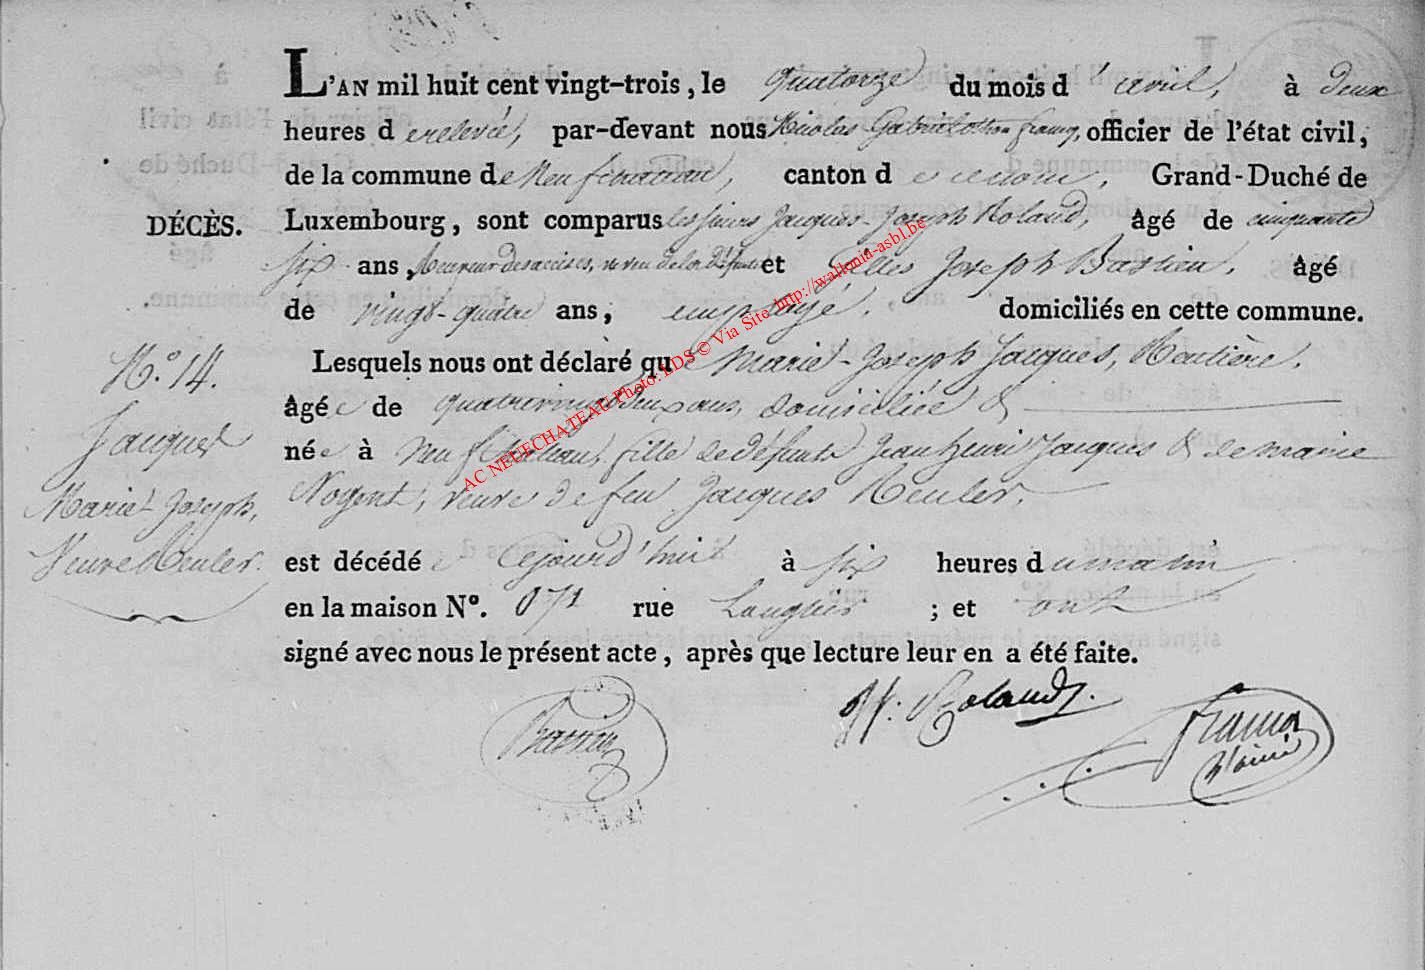 L'AN mil huit cent vingt-trois, le quatorze du mois d'avril, à deux
heures de relevée, par-devant nous Nicolas Gabriel officier de l'état civil,
de la commune de Neufchateau, canton d Grand-Duché de
DÉCÈS.
Luxembourg, sont comparus les sieurs Jacques-Joseph Roland, âgé de cinquante
six ans, Receveur des accises, neveu de la défunte et Gilles Joseph Bastien, âgé
de vingt-quatre ans, employé, domiciliés en cette commune.
Lesquels nous ont déclaré que Marie-Joseph Jacques, Rentière,
âgée de quatrevingt deux ans, domiciliée &
née à Neufchateau, fille de défunts Jean henri Jacques & de marie
Nogent, veuve de feu Jacques Meuler,
est décédée cejourd'huit à six heures du matin
en la maison N°. 071 rue ; et ont
signé avec nous le présent acte, après que lecture leur en a été faite.
N.° 14.
Jacques
Marie-Joseph,
Veuve Meuler.
Bastien
JJ. Roland.
François
l'ainé
AC NEUFCHATEAU Photo: LDS © Via Site http://wallonia-asbl.be